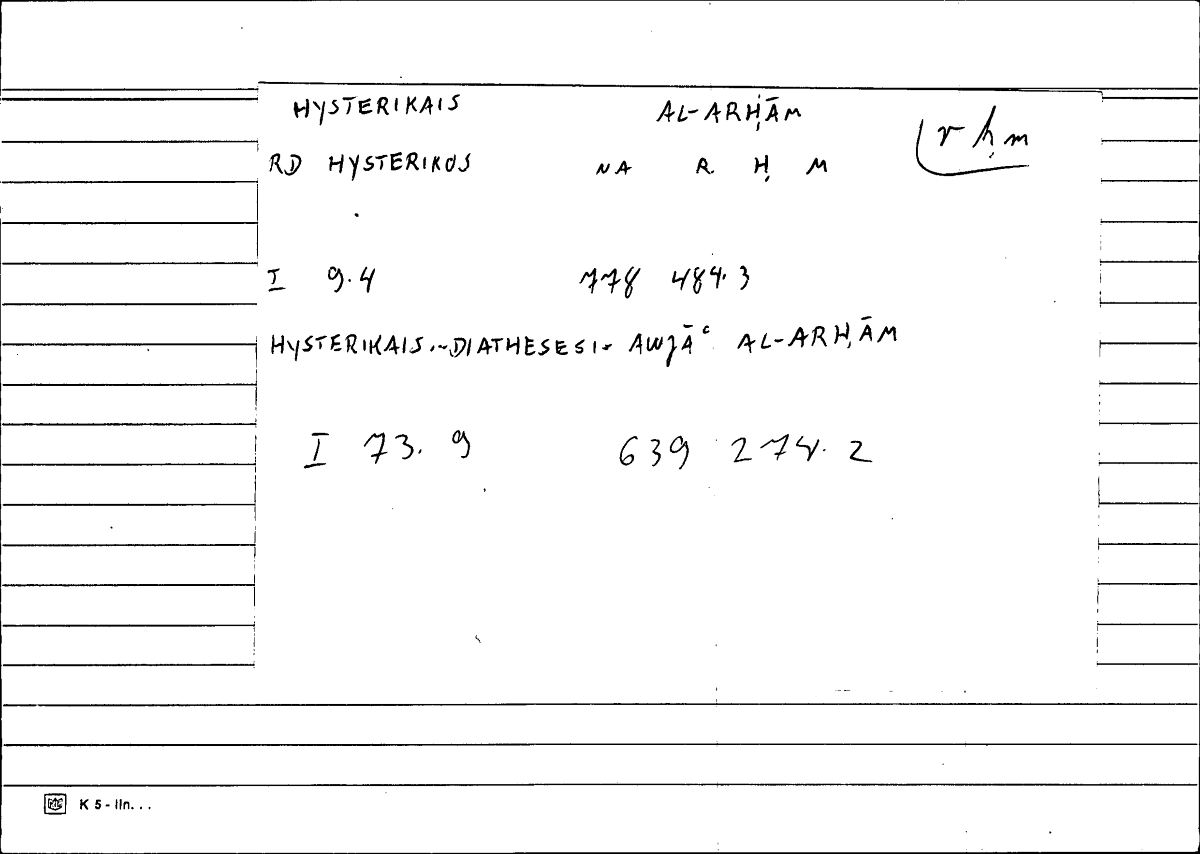 HYSTERIKAIS AL-ARḤĀM
rḥm
RD HYSTERIKOS NA R Ḥ M
I 9.4 778 484.3
HYSTERIKAIS.~DIATHESESI- AWJĀʿ AL-ARḤĀM
I 73.9 639 274.2
K 5 - lln. . .